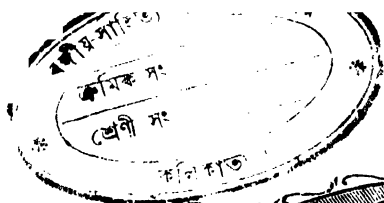 বঙ্গীয়-সাহিত্য
ক্রমিক সং
শ্রেণী সং
কলিকাতা